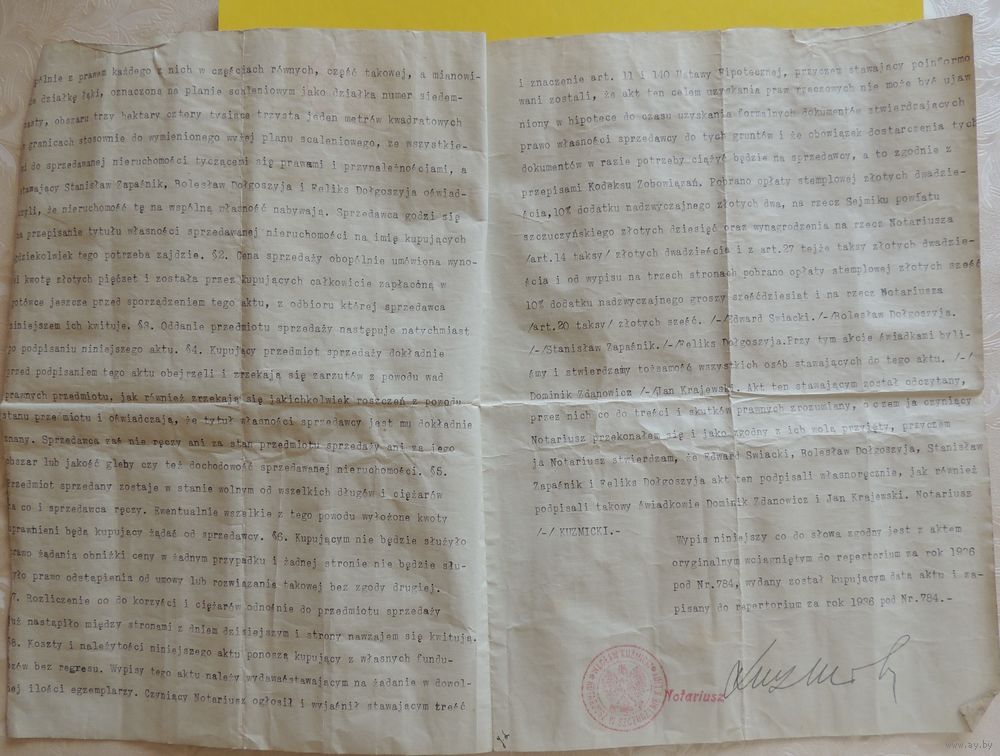 pólnie z prawem każdego z nich w częściach równych, część takowej, a mianowi-
działkę łąki, oznaczoną na planie scaleniowym jako działka numer siedem-
nasty, obszaru trzy hektary cztery tysiące trzysta jeden metrów kwadratowych
granicach stosownie do wymienionego wyżej planu scaleniowego, ze wszystkie-
mi do sprzedawanej nieruchomości tyczącemi się prawami i przynależnościami, a
stawający Stanisław Zapaśnik, Bolesław Dołgoszyja i Feliks Dołgoszyja oświad-
czyli, że nieruchomość tę na wspólną własność nabywają. Sprzedawca godzi się
na przepisanie tytułu własności sprzedawanej nieruchomości na imię kupujących
gdziekolwiek tego potrzeba zajdzie. §2. Cena sprzedaży obopólnie umówiona wyno-
si kwotę złotych pięćset i została przez kupujących całkowicie zapłaconą w
gotówce jeszcze przed sporządzeniem tego aktu, z odbioru której sprzedawca
niniejszem ich kwituje. §3. Oddanie przedmiotu sprzedaży następuje natychmiast
po podpisaniu niniejszego aktu. §4. Kupujący przedmiot sprzedaży dokładnie
przed podpisaniem tego aktu obejrzeli i zrzekają się zarzutów z powodu wad
prawnych przedmiotu, jak również zrzekają się jakichkolwiek roszczeń z powodu
stanu przedmiotu i oświadczają, że tytuł własności sprzedawcy jest mu dokładnie
znany. Sprzedawca zaś nie ręczy ani za stan przedmiotu sprzedaży ani za jego
obszar lub jakość gleby czy też dochodowość sprzedawanej nieruchomości. §5.
Przedmiot sprzedany zostaje w stanie wolnym od wszelkich długów i ciężarów
za co i sprzedawca ręczy. Ewentualnie wszelkie z tego powodu wyłożone kwoty
uprawnieni będą kupujący żądać od sprzedawcy. §6. Kupującym nie będzie służyło
prawo żądania obniżki ceny w żadnym przypadku i żadnej stronie nie będzie słu-
żyło prawo odstąpienia od umowy lub rozwiązania takowej bez zgody drugiej.
§7. Rozliczenie co do korzyści i ciężarów odnośnie do przedmiotu sprzedaży
już nastąpiło między stronami z dniem dzisiejszym i strony nawzajem się kwitują.
§8. Koszty i należytości niniejszego aktu ponoszą kupujący z własnych fundu-
szów bez regresu. Wypisy tego aktu należy wydawać stawającym na żądanie w dowol-
nej ilości egzemplarzy. Czyniący Notariusz ogłosił i wyjaśnił stawającym treść
i znaczenie art. 11 i 140 Ustawy Hipotecznej, przyczem stawający poinformo
wani zostali, że akt ten celem uzyskania praw rzeczowych nie może być ujaw
niony w hipotece do czasu uzyskania formalnych dokumentów stwierdzających
prawo własności sprzedawcy do tych gruntów i że obowiązek dostarczenia tych
dokumentów w razie potrzeby ciążyć będzie na sprzedawcy, a to zgodnie z
przepisami Kodeksu Zobowiązań. Pobrano opłaty stemplowej złotych dwadzie-
ścia, 10% dodatku nadzwyczajnego złotych dwa, na rzecz Sejmiku powiatu
szczuczyńskiego złotych dziesięć oraz wynagrodzenia na rzecz Notariusza
/art.14 taksy/ złotych dwadzieścia i z art.27 tejże taksy złotych dwadzie-
ścia i od wypisu na trzech stronach pobrano opłaty stemplowej złotych sześć
10% dodatku nadzwyczajnego groszy sześćdziesiąt i na rzecz Notariusza
/art.20 taksy/ złotych sześć. /-/Edward Swiacki./-/Bolesław Dołgoszyja.
/-/Stanisław Zapaśnik./-/Feliks Dołgoszyja.Przy tym akcie świadkami byli-
śmy i stwierdzamy tożsamość wszystkich osób stawających do tego aktu. /-/
Dominik Zdanowicz /-/Jan Krajewski. Akt ten stawającym został odczytany,
przez nich co do treści i skutków prawnych zrozumiany, o czem ja czyniący
Notariusz przekonałem się i jako zgodny z ich wolą przyjęty, przyczem
ja Notariusz stwierdzam, że Edward Swiacki, Bolesław Dołgoszyja, Stanisław
Zapaśnik i Feliks Dołgoszyja akt ten podpisali własnoręcznie, jak również
podpisali takowy świadkowie Dominik Zdanowicz i Jan Krajewski. Notariusz
/-/ KUZMICKI.-
Wypis niniejszy co do słowa zgodny jest z aktem
oryginalnym wciągniętym do repertorium za rok 1936
pod Nr.784, wydany został kupującym data aktu i za-
pisany do repertorium za rok 1936 pod Nr.784.-
Notariusz
www.ay.by